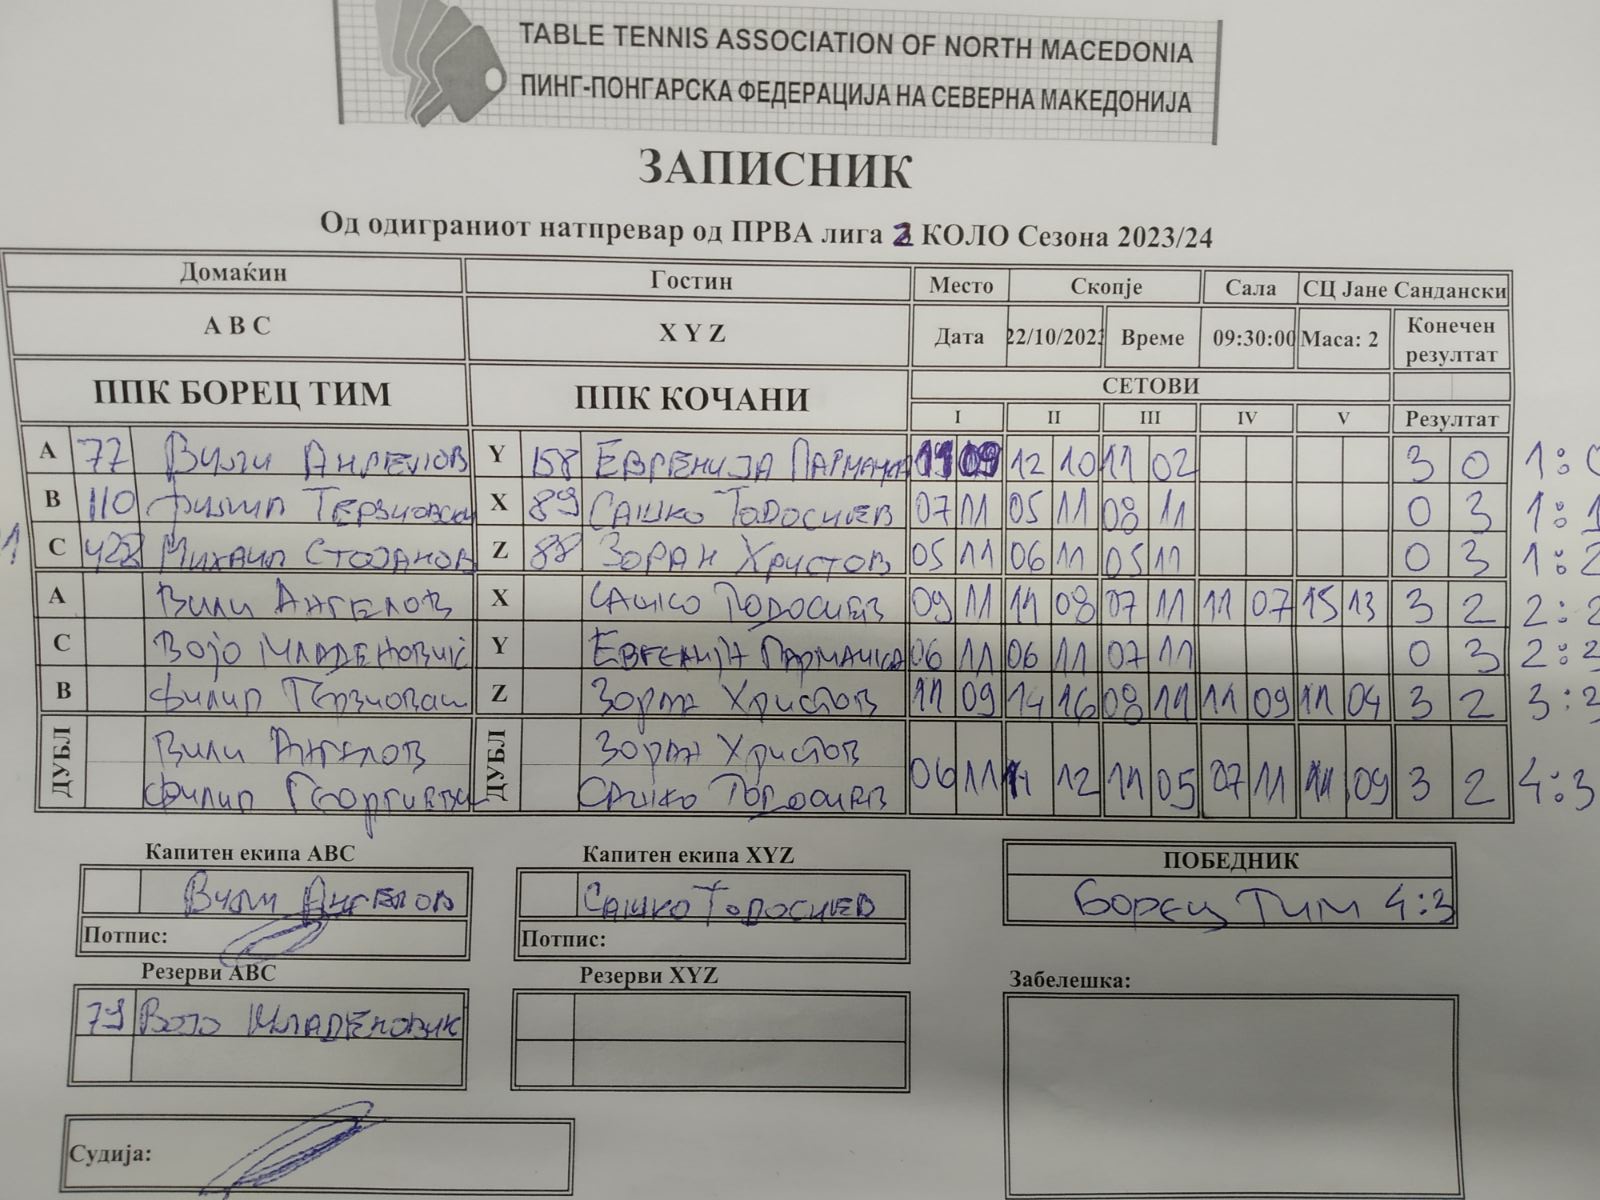 TABLE TENNIS ASSOCIATION OF NORTH MACEDONIA
ПИНГ-ПОНГАРСКА ФЕДЕРАЦИЈА НА СЕВЕРНА МАКЕДОНИЈА
ЗАПИСНИК
Од одиграниот натпревар од ПРВА лига 2 КОЛО Сезона 2023/24
Домаќин Гостин Место Скопје Сала СЦ Јане Сандански
A B C X Y Z Дата 22/10/2023 Време 09:30:00 Маса: 2 Конечен резултат
ППК БОРЕЦ ТИМ ППК КОЧАНИ СЕТОВИ
I II III IV V Резултат
A 77 Вили Ангелов Y 158 ЕВГЕНИЈА 11 09 12 10 11 02 3 0 1:0
B 110 Филип Терзиовски X 89 Сашко Тодосиев 07 11 05 11 08 11 0 3 1:1
C 428 Михаил Стојанов Z 88 Зоран Христов 05 11 06 11 05 11 0 3 1:2
A Вили Ангелов X Сашко Тодосиев 09 11 11 08 07 11 11 07 15 13 3 2 2:2
C Војо Младеновиќ Y Евгенија 06 11 06 11 07 11 0 3 2:3
B Филип Z Зоран Христов 11 09 14 16 08 11 11 09 11 04 3 2 3:3
ДУБЛ Вили Ангелов ДУБЛ Зоран Христов
Филип Сашко Тодосиев 06 11 12 11 05 07 11 11 09 3 2 4:3
Капитен екипа ABC Капитен екипа XYZ ПОБЕДНИК
Вили Ангелов Сашко Тодосиев Борец Тим 4:3
Потпис: Потпис:
Резерви ABC Резерви XYZ Забелешка:
79 Војо Младеновиќ
Судија: